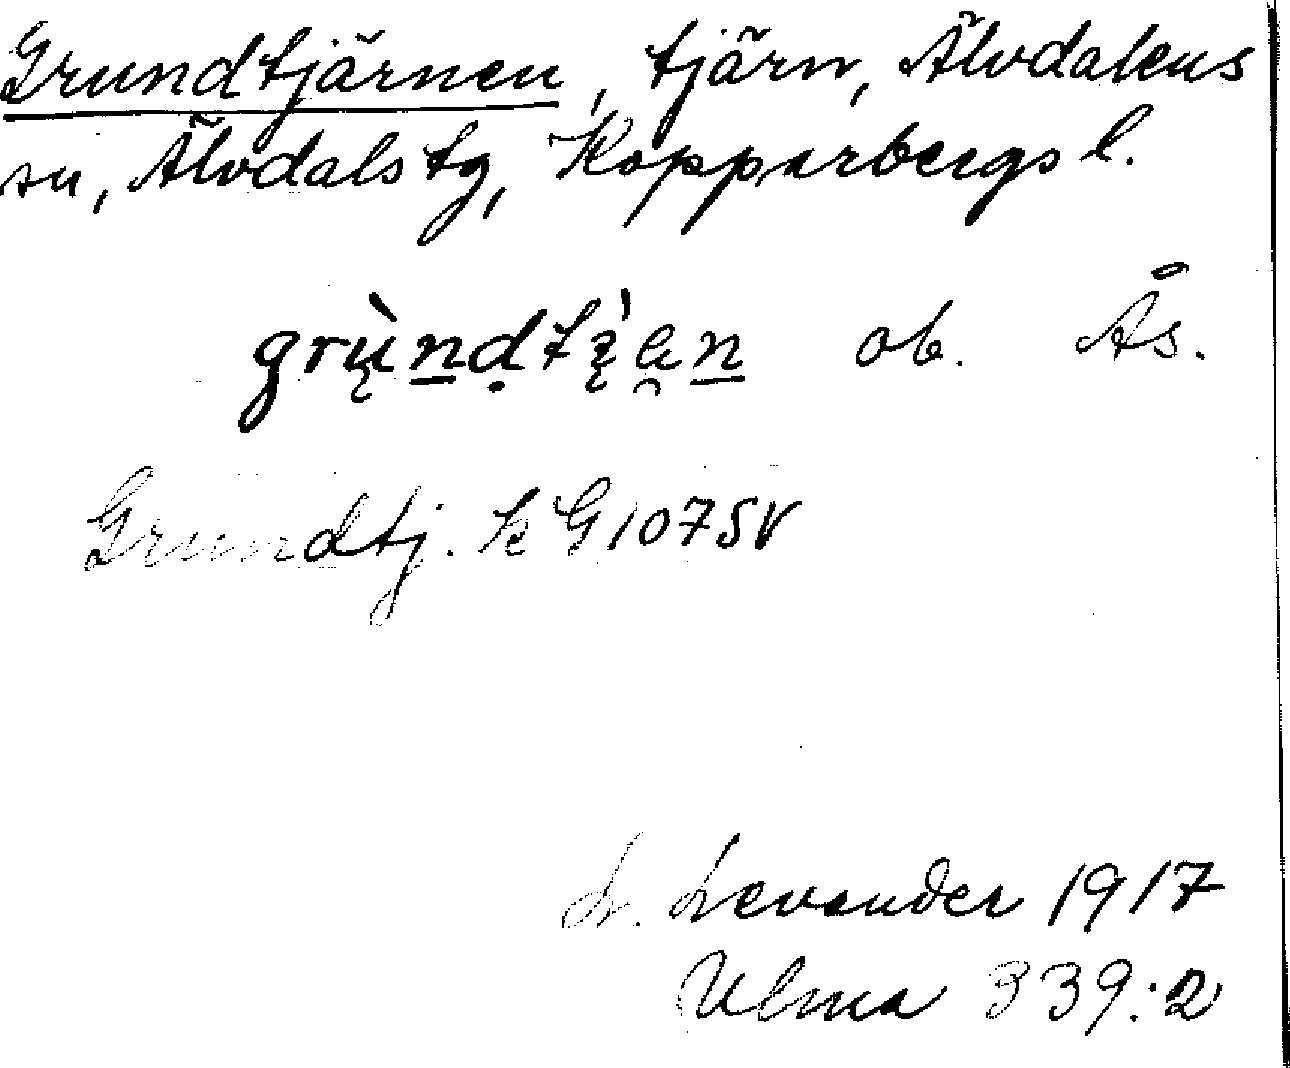 Grundtjärnen, tjärn, Älvdalens
sn, Älvdals tg, Kopparbergs l.
ob. Ås.
Grundtj. k G 107 SV
L. Levander 1917
Ulma 339:2